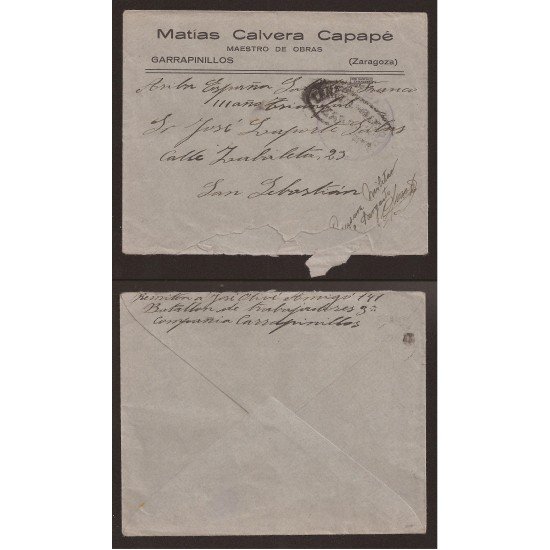 Matías Calvera Capapé
MAESTRO DE OBRAS
GARRAPINILLOS (Zaragoza)
Arriba España Franco
III año triunfal
Sr José Laporte Salas
Calle Zubileta, 23
San Sebastián
Censura Militar
Remitente José Olivé Amigó 141
Batallon de trabajadores 3ª
Compañia Garrapinillos